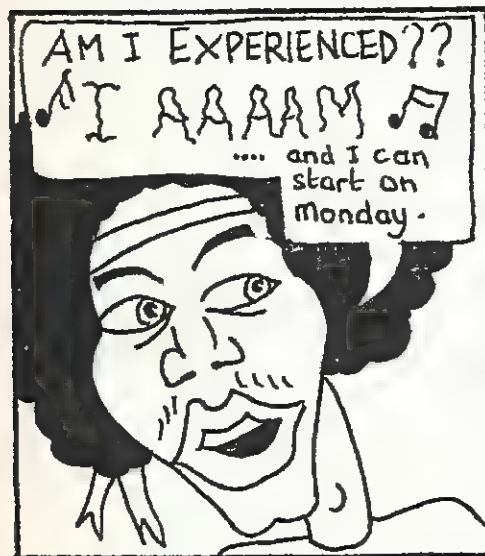 AM I EXPERIENCED??
I AAAAM
.... and I can
start on
monday.